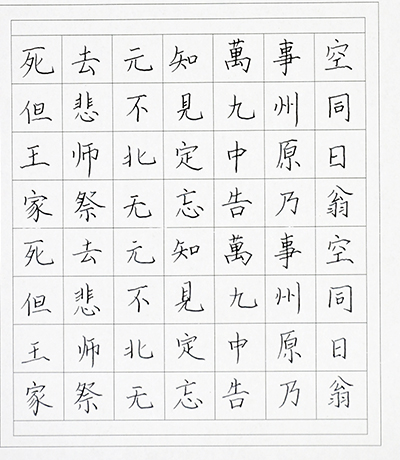 死去元知萬事空
但悲不見九州同
王师北定中原日
家祭无忘告乃翁
死去元知萬事空
但悲不見九州同
王师北定中原日
家祭无忘告乃翁